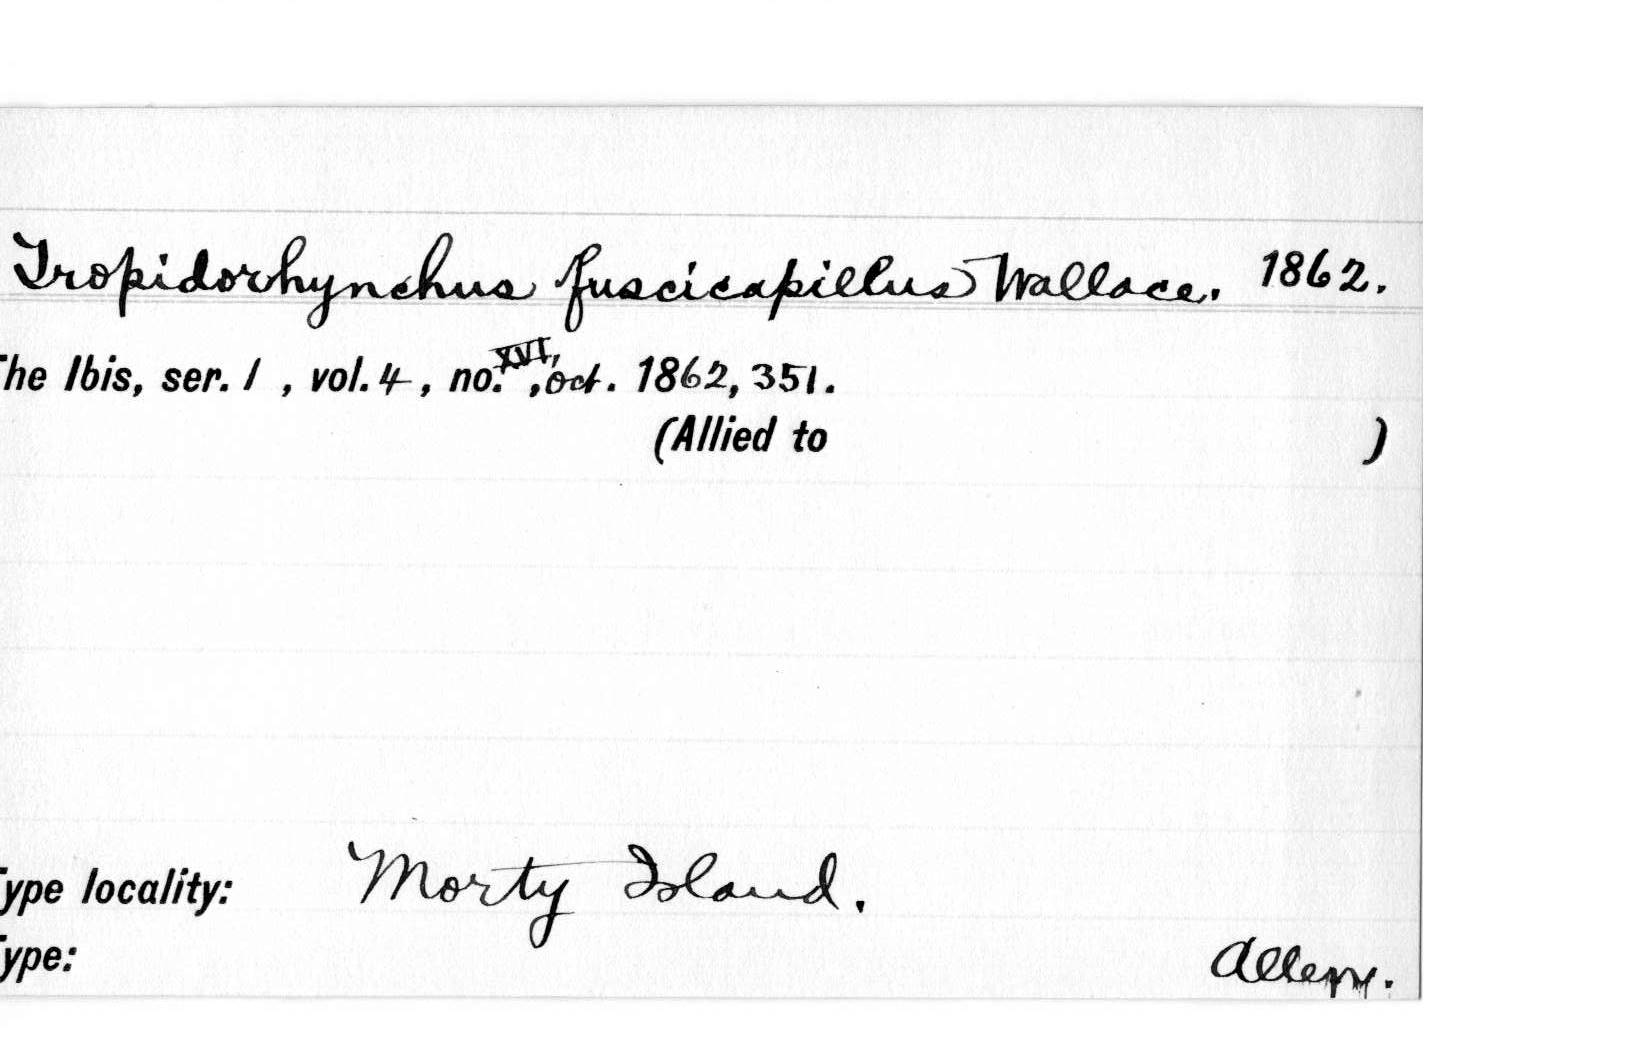 Tropidorhynchus fuscicapillus Wallace. 1862.
The Ibis, ser. 1 , vol. 4 , no. XVI, , oct. 1862, 351.
(Allied to )
Type locality: Morty Island.
Type: Allen.